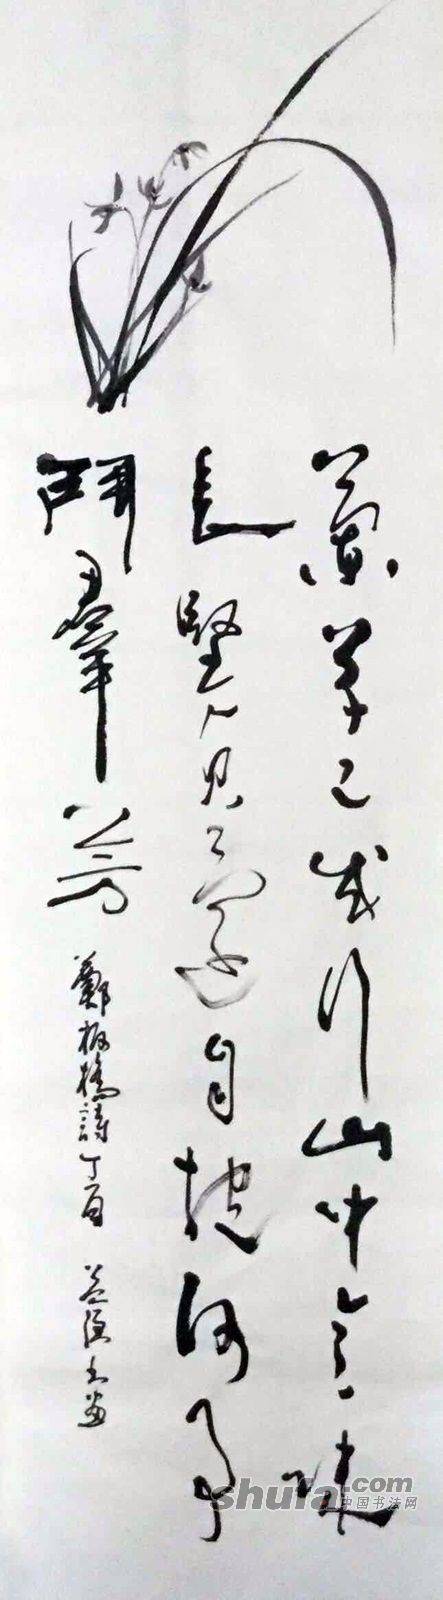 蘭草已成行山中意味
長堅貞還自抱何事
鬥羣芳
鄭板橋詩丁酉
shufa.com
中国书法网